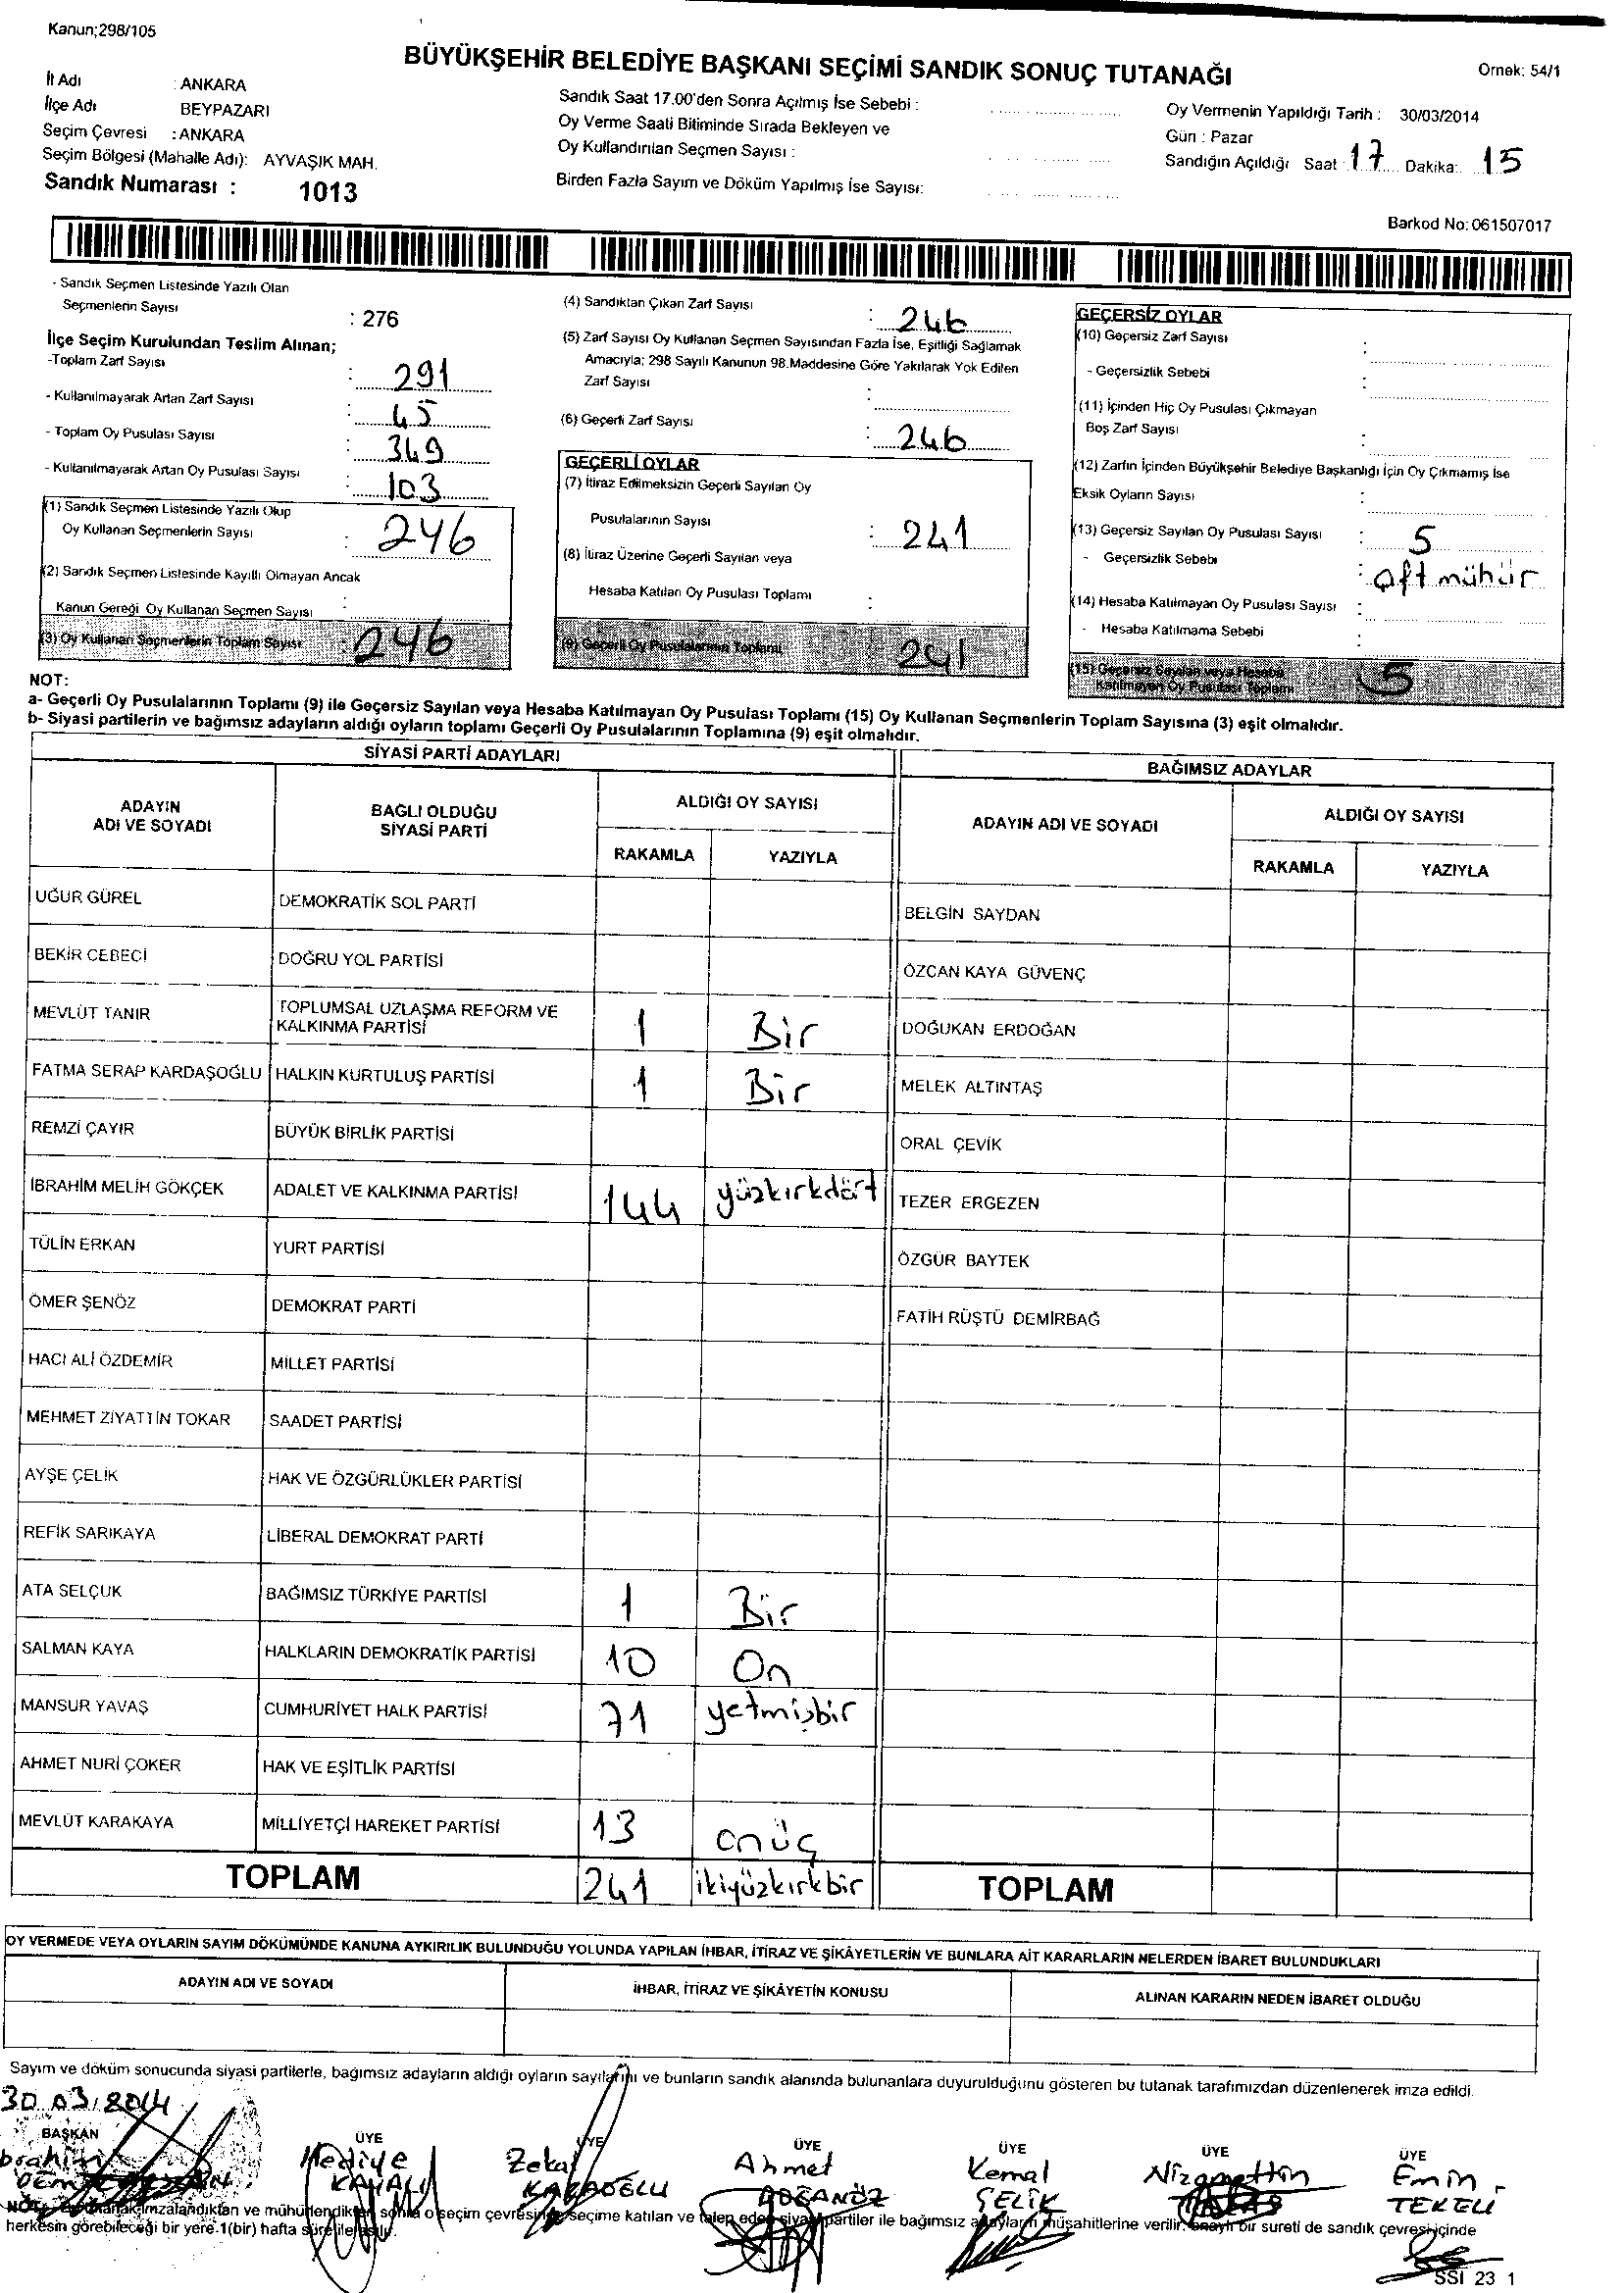 Kanun;298/105
BÜYÜKŞEHİR BELEDİYE BAŞKANI SEÇİMİ SANDIK SONUÇ TUTANAĞI
Ornek: 54/1
İl Adı : ANKARA
İlçe Adı BEYPAZARI
Seçim Çevresi : ANKARA
Seçim Bölgesi (Mahalle Adı): AYVAŞIK MAH.
Sandık Numarası : 1013
Sandık Saat 17.00'den Sonra Açılmış İse Sebebi :
Oy Verme Saati Bitiminde Sırada Bekleyen ve
Oy Kullandırılan Seçmen Sayısı :
Birden Fazla Sayım ve Döküm Yapılmış İse Sayısı:
Oy Vermenin Yapıldığı Tarih : 30/03/2014
Gün : Pazar
Sandığın Açıldığı Saat : 17 Dakika: 15
Barkod No: 061507017
- Sandık Seçmen Listesinde Yazılı Olan
Seçmenlerin Sayısı : 276
İlçe Seçim Kurulundan Teslim Alınan;
-Toplam Zarf Sayısı : 291
- Kullanılmayarak Artan Zarf Sayısı : 45
- Toplam Oy Pusulası Sayısı : 349
- Kullanılmayarak Artan Oy Pusulası Sayısı : 103
(1) Sandık Seçmen Listesinde Yazılı Olup
Oy Kullanan Seçmenlerin Sayısı : 246
(2) Sandık Seçmen Listesinde Kayıtlı Olmayan Ancak
Kanun Gereği Oy Kullanan Seçmen Sayısı :
(3) Oy Kullanan Seçmenlerin Toplam Sayısı : 246
(4) Sandıktan Çıkan Zarf Sayısı : 246
(5) Zarf Sayısı Oy Kullanan Seçmen Sayısından Fazla İse, Eşitliği Sağlamak
Amacıyla; 298 Sayılı Kanunun 98.Maddesine Göre Yakılarak Yok Edilen
Zarf Sayısı :
(6) Geçerli Zarf Sayısı : 246
GEÇERLİ OYLAR
(7) İtiraz Edilmeksizin Geçerli Sayılan Oy
Pusulalarının Sayısı : 241
(8) İtiraz Üzerine Geçerli Sayılan veya
Hesaba Katılan Oy Pusulası Toplamı :
(9) Geçerli Oy Pusulalarının Toplamı 241
GEÇERSİZ OYLAR
(10) Geçersiz Zarf Sayısı :
- Geçersizlik Sebebi :
(11) İçinden Hiç Oy Pusulası Çıkmayan
Boş Zarf Sayısı :
(12) Zarfın İçinden Büyükşehir Belediye Başkanlığı İçin Oy Çıkmamış İse
Eksik Oyların Sayısı :
(13) Geçersiz Sayılan Oy Pusulası Sayısı : 5
- Geçersizlik Sebebi : çift mühür
(14) Hesaba Katılmayan Oy Pusulası Sayısı :
- Hesaba Katılmama Sebebi :
(15) Geçersiz Sayılan veya Hesaba
Katılmayan Oy Pusulası Toplamı 5
NOT:
a- Geçerli Oy Pusulalarının Toplamı (9) ile Geçersiz Sayılan veya Hesaba Katılmayan Oy Pusulası Toplamı (15) Oy Kullanan Seçmenlerin Toplam Sayısına (3) eşit olmalıdır.
b- Siyasi partilerin ve bağımsız adayların aldığı oyların toplamı Geçerli Oy Pusulalarının Toplamına (9) eşit olmalıdır.
SİYASİ PARTİ ADAYLARI
ADAYIN ADI VE SOYADI BAĞLI OLDUĞU SİYASİ PARTİ ALDIĞI OY SAYISI
RAKAMLA YAZIYLA
UĞUR GÜREL DEMOKRATİK SOL PARTİ
BEKİR CEBECİ DOĞRU YOL PARTİSİ
MEVLÜT TANIR TOPLUMSAL UZLAŞMA REFORM VE KALKINMA PARTİSİ 1 Bir
FATMA SERAP KARDAŞOĞLU HALKIN KURTULUŞ PARTİSİ 1 Bir
REMZİ ÇAYIR BÜYÜK BİRLİK PARTİSİ
İBRAHİM MELİH GÖKÇEK ADALET VE KALKINMA PARTİSİ 144 yüzkırkdört
TÜLİN ERKAN YURT PARTİSİ
ÖMER ŞENÖZ DEMOKRAT PARTİ
HACI ALİ ÖZDEMİR MİLLET PARTİSİ
MEHMET ZİYATTİN TOKAR SAADET PARTİSİ
AYŞE ÇELİK HAK VE ÖZGÜRLÜKLER PARTİSİ
REFİK SARIKAYA LİBERAL DEMOKRAT PARTİ
ATA SELÇUK BAĞIMSIZ TÜRKİYE PARTİSİ 1 Bir
SALMAN KAYA HALKLARIN DEMOKRATİK PARTİSİ 10 On
MANSUR YAVAŞ CUMHURİYET HALK PARTİSİ 71 yetmişbir
AHMET NURİ ÇOKER HAK VE EŞİTLİK PARTİSİ
MEVLÜT KARAKAYA MİLLİYETÇİ HAREKET PARTİSİ 13 onüç
TOPLAM 241 ikiyüzkırkbir
BAĞIMSIZ ADAYLAR
ADAYIN ADI VE SOYADI ALDIĞI OY SAYISI
RAKAMLA YAZIYLA
BELGİN SAYDAN
ÖZCAN KAYA GÜVENÇ
DOĞUKAN ERDOĞAN
MELEK ALTINTAŞ
ORAL ÇEVİK
TEZER ERGEZEN
ÖZGÜR BAYTEK
FATİH RÜŞTÜ DEMİRBAĞ
TOPLAM
OY VERMEDE VEYA OYLARIN SAYIM DÖKÜMÜNDE KANUNA AYKIRILIK BULUNDUĞU YOLUNDA YAPILAN İHBAR, İTİRAZ VE ŞİKÂYETLERİN VE BUNLARA AİT KARARLARIN NELERDEN İBARET BULUNDUKLARI
ADAYIN ADI VE SOYADI İHBAR, İTİRAZ VE ŞİKÂYETİN KONUSU ALINAN KARARIN NEDEN İBARET OLDUĞU
Sayım ve döküm sonucunda siyasi partilerle, bağımsız adayların aldığı oyların sayılarını ve bunların sandık alanında bulunanlara duyurulduğunu gösteren bu tutanak tarafımızdan düzenlenerek imza edildi.
30.03.2014
BAŞKAN ÜYE ÜYE ÜYE ÜYE ÜYE ÜYE
Hediye Zekai Ahmet Kemal Nizamettin Emin
KAVALI KARAOĞLU DOĞANÖZ ÇELİK TEKELİ
NOT: imzalandıktan ve mühürlendikten sonra o seçim çevresinde seçime katılan ve talep eden siyasi partiler ile bağımsız adayların müşahitlerine verilir. Onaylı bir sureti de sandık çevresi içinde
herkesin görebileceği bir yere 1(bir) hafta süre ile asılır.
SSİ 23 1